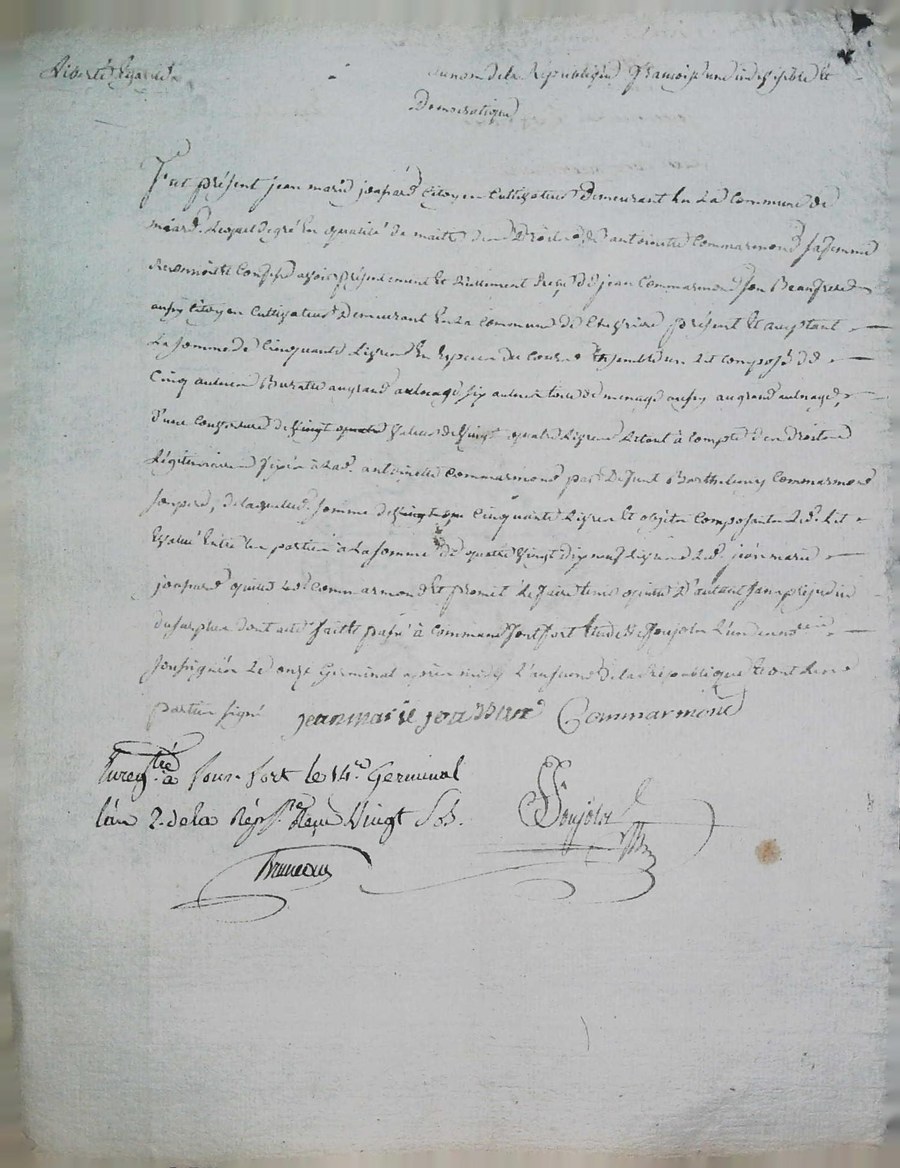 Liberté Egalité
au nom de la Republique française une indivisible et
Democratique
Fut présent jean marie citoyen cultivateur demeurant en la commune de
Lequel de gré en qualité de maitre des Droits de antoinette Commarmond sa femme
reconnoit et Confesse avoir présentement et réellement reçu de jean Commarmond son Beaufrere
aussy citoyen cultivateur Demeurant en la commune de présent et acceptant
La somme de Cinquante Livres en Especes du Cours Ensemble un Lit composé de
Cinq aulnes au grand aulnage six aulnes toile de menage aussy au grand aulnage,
d'une Couverture de vingt quatre valeur de vingt quatre Livres Le tout à compte des Droits
Légitimaires fixés à lad. antoinette Commarmond par Defunt Barthelemy Commarmond
son pere, de laquelle somme de Cinquante Livres et objets Composants led. Lit
Evalué Entre les parties à La somme de quatre vingt dix neuf Livres led. jean marie
quitte led. Commarmond et promet le faire tenir quitte d'autant sans prejudice
du surplus dont acte fait et passé à Commune d'font fort Etude de Soujolos L'un des no.res
soussignés Le onze Germinal après midy L'an second de la République et ont les
parties signé jean marie Commarmond
Enregtré à fons-fort le 14.e Germinal
l'an 2. de la Rép.e Reçu Vingt Sols.
Bruneau